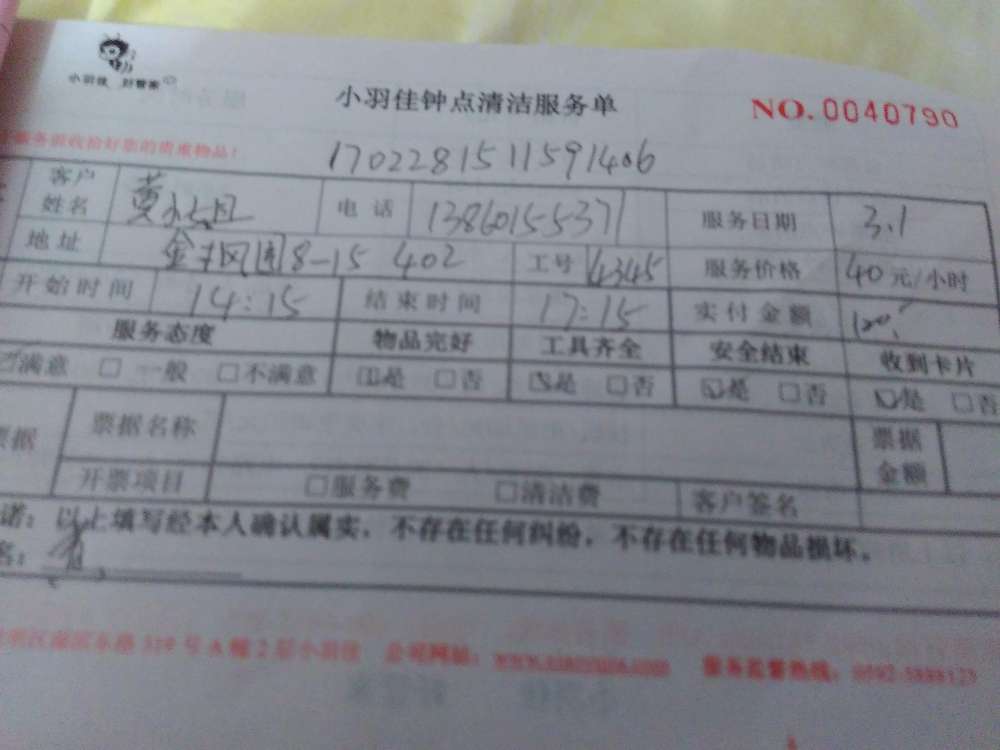 小羽佳 好管家
小羽佳钟点清洁服务单
NO.0040790
服务前收拾好您的贵重物品!
1702281511591406
客户姓名 黄 电话 13860155371 服务日期 3.1
地址 8-15 402 工号 4345 服务价格 40元/小时
开始时间 14:15 结束时间 17:15 实付金额
服务态度 物品完好 工具齐全 安全结束 收到卡片
☑满意 □一般 □不满意 ☑是 □否 ☑是 □否 ☑是 □否 ☑是 □否
票据 票据名称 票据金额
开票项目 □服务费 □清洁费 客户签名
诺:以上填写经本人确认属实,不存在任何纠纷,不存在任何物品损坏。
名:
319号A幢2层小羽佳 公司网站: 服务监督热线:0592-5888123